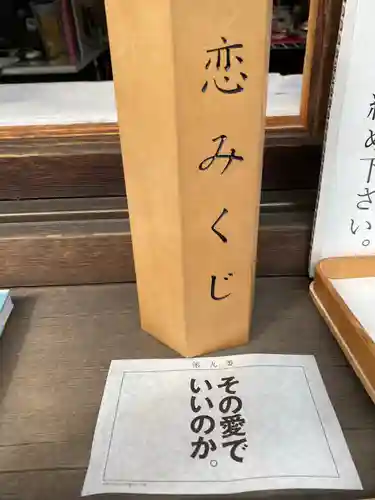 恋みくじ
納め下さい。
第九番
その愛で
いいのか。